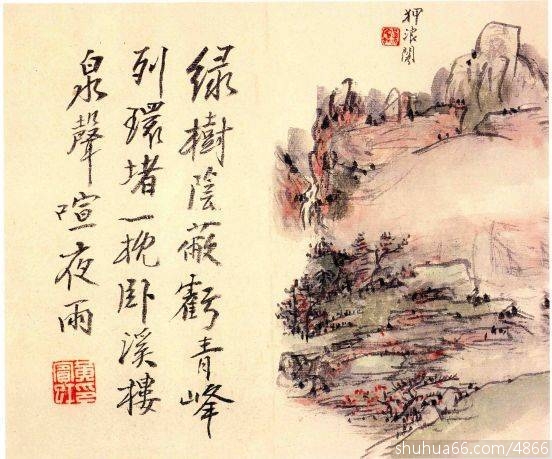 狎浪閣
綠樹陰蔽虧青峰
列環堵一枕卧溪樓
泉聲喧夜雨
shuhua66.com/4866